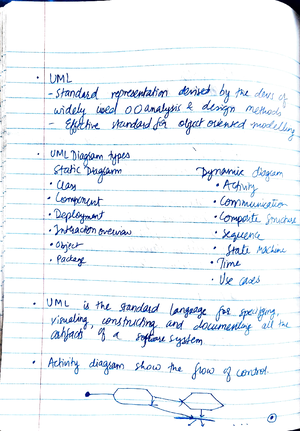 • UML
- Standard representation devised by the devs of
widely used OO analysis & design methods
- Effective standard for object oriented modelling
• UML Diagram types
Static Diagram
• Class
• Component
• Deployment
• Interaction overview
• Object
• Package
Dynamic diagram
• Activity
• Communication
• Composite structure
• Sequence
• State Machine
• Time
• Use cases
• UML is the standard language for specifying,
visualing, constructing and documenting all the
artifacts of a software system
• Activity diagram show the flow of control.